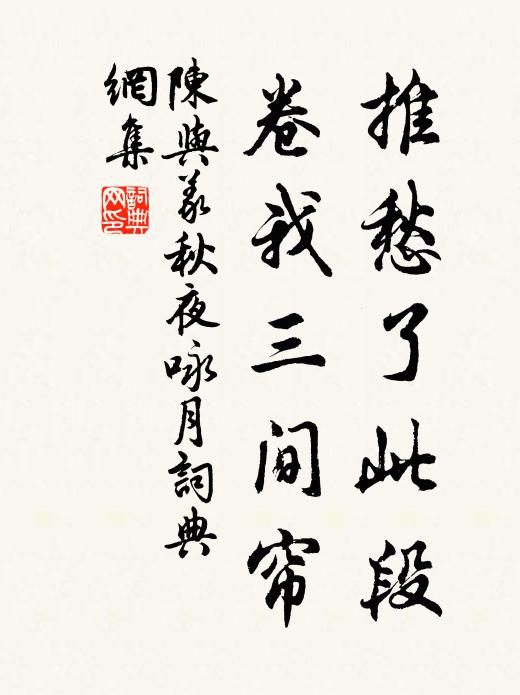 推愁了此段
卷我三间帘
陳與義秋夜咏月詞典
網集
詞典网印